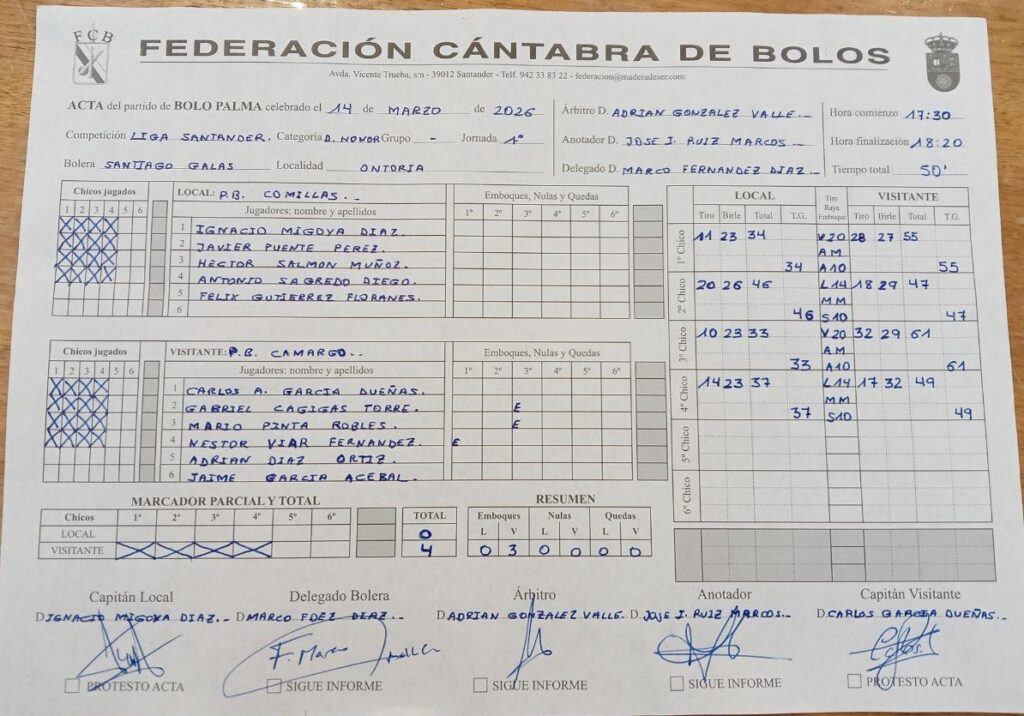 FCB
FEDERACIÓN CÁNTABRA DE BOLOS
Avda. Vicente Trueba, s/n - 39012 Santander - Telf. 942 33 83 22 - federacion@maderadeser.com
ACTA del partido de BOLO PALMA celebrado el 14 de MARZO de 2026
Competición LIGA SANTANDER. Categoría D. HONOR Grupo - Jornada 1ª
Bolera SANTIAGO GALAS Localidad ONTORIA
Árbitro D. ADRIAN GONZALEZ VALLE.-
Anotador D. JOSE I. RUIZ MARCOS -
Delegado D. MARCO FERNANDEZ DIAZ.-
Hora comienzo 17:30
Hora finalización 18:20
Tiempo total 50'
Chicos jugados
1 2 3 4 5 6
LOCAL: P.B. COMILLAS.-
Jugadores: nombre y apellidos
1 IGNACIO MIGOYA DIAZ.
2 JAVIER PUENTE PEREZ.
3 HECTOR SALMON MUÑOZ.
4 ANTONIO SAGREDO DIEGO.
5 FELIX GUTIERREZ FLORANES.
6
Emboques, Nulas y Quedas
1º 2º 3º 4º 5º 6º
Chicos jugados
1 2 3 4 5 6
VISITANTE: P.B. CAMARGO..
Jugadores: nombre y apellidos
1 CARLOS A. GARCIA DUEÑAS.
2 GABRIEL CAGIGAS TORRE. E
3 MARIO PINTA ROBLES. E
4 NESTOR VIAR FERNANDEZ. E
5 ADRIAN DIAZ ORTIZ.
6 JAIME GARCIA ACEBAL.
Emboques, Nulas y Quedas
1º 2º 3º 4º 5º 6º
LOCAL Tiro Raya Emboque VISITANTE
Tiro Birle Total T.G. Tiro Birle Total T.G.
1º Chico 11 23 34 V20 28 27 55
AM
34 A10 55
2º Chico 20 26 46 L14 18 29 47
MM
46 S10 47
3º Chico 10 23 33 V.20 32 29 61
AM
33 A10 61
4º Chico 14 23 37 L14 17 32 49
MM
37 S10 49
5º Chico
6º Chico
MARCADOR PARCIAL Y TOTAL
Chicos 1º 2º 3º 4º 5º 6º TOTAL
LOCAL 0
VISITANTE X X X X 4
RESUMEN
Emboques Nulas Quedas
L V L V L V
0 3 0 0 0 0
Capitán Local Delegado Bolera Árbitro Anotador Capitán Visitante
D. IGNACIO MIGOYA DIAZ.- D. MARCO FDEZ DIAZ.- D. ADRIAN GONZALEZ VALLE. D. JOSE I. RUIZ MARCOS.- D. CARLOS GARCIA DUEÑAS.-
F. Marco
PROTESTO ACTA SIGUE INFORME SIGUE INFORME SIGUE INFORME PROTESTO ACTA